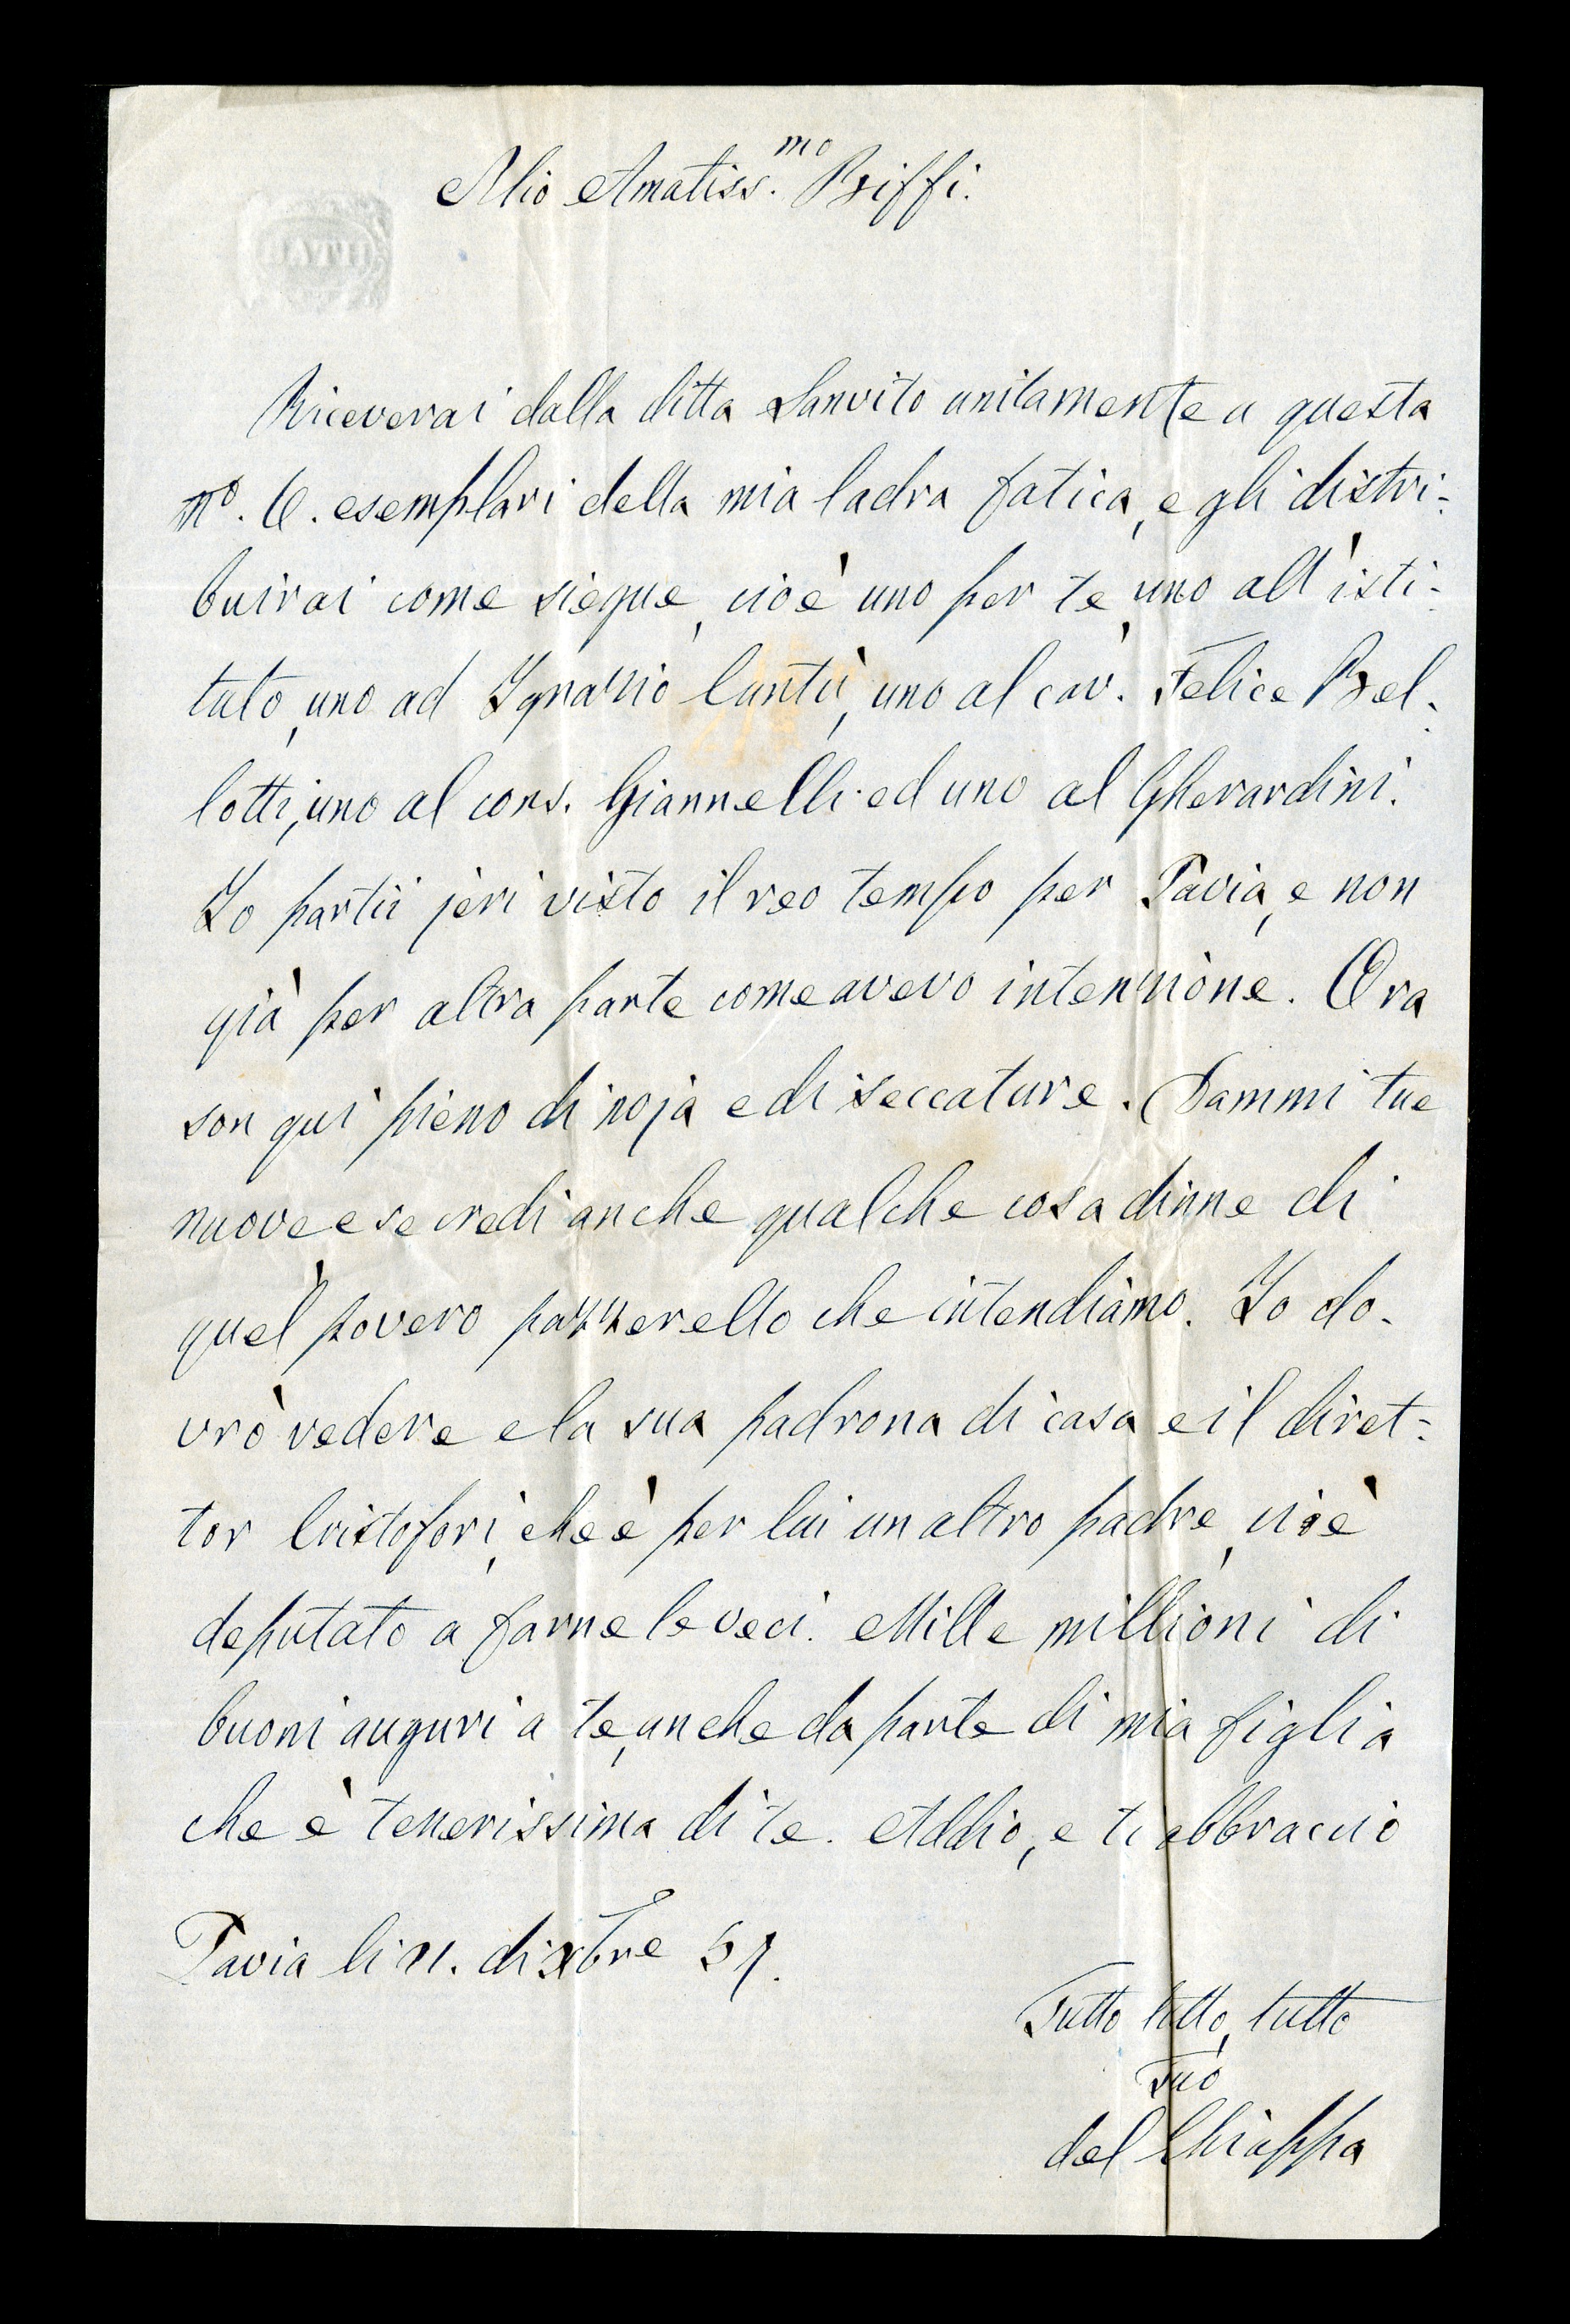 Mio Amatiss.mo Biffi.
BATH
Riceverai dalla ditta Sanvito unitamente a questa
no. 6. esemplari della mia ladra fatica, e gli distri-
buirai come siegue, cioè uno per te, uno all'isti-
tuto, uno ad Ignazio Cantù, uno al cav. Felice Bel-
lotti, uno al cons. Giannelli ed uno al Gherardini.
Io partii jeri visto il reo tempo per Pavia, e non
già per altra parte come avevo intenzione. Ora
son qui pieno di noja e di seccature. Dammi tue
nuove e se credi anche qualche cosa dinne di
quel povero pazzerello che intendiamo. Io do-
vrò vedere e la sua padrona di casa e il diret-
tor Cristofori, che è per lui un altro padre, cioè
deputato a farne le veci. Mille millioni di
buoni auguri a te, anche da parte di mia figlia
che è tenerissima di te. Addio, e ti abbraccio
Pavia li di xbre 57.
Tutto tutto, tutto
Tuo
del Chiappa